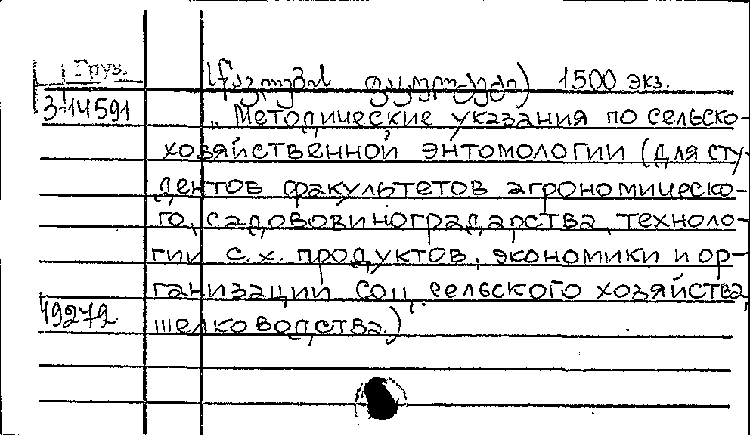 Груз.
1500 экз.
3-14591
„Методические указания по сельско-
хозяйственной энтомологии (для сту-
дентов факультетов агрономическо-
го, садововиноградарства, техноло-
гии с.х. продуктов, экономики и ор-
ганизации соц. сельского хозяйства,
49272
шелководства.)"